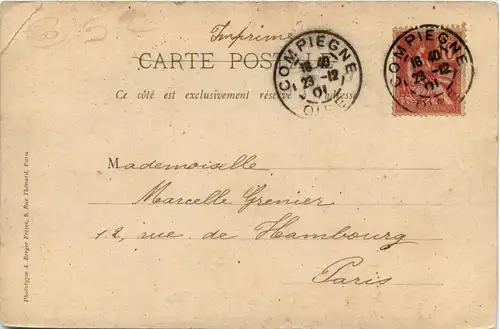 Imprimé
CARTE POSTALE
Ce côté est exclusivement réservé à l'adresse
COMPIEGNE
16 40
23 -12
01
OISE
COMPIEGNE
16 40
23 -12
01
OISE
Mademoiselle
Marcelle Grenier
12, rue de Hambourg
Paris
Phototypie A. Berger Frères, 9, Rue Thénard, Paris